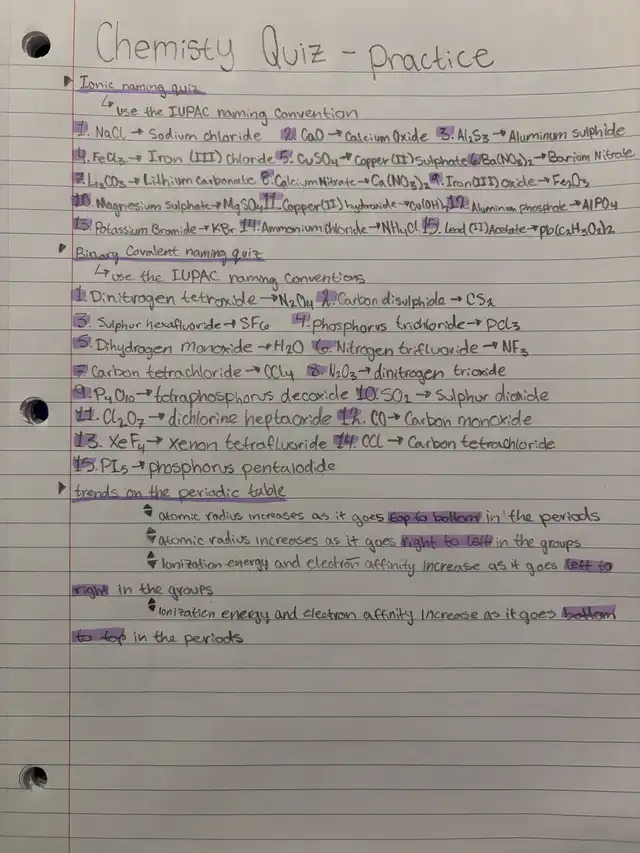 Chemisty Quiz - Practice
Ionic naming quiz
↳ use the IUPAC naming convention
1. NaCl → Sodium chloride 2. CaO → Calcium Oxide 3. Al₂S₃ → Aluminum sulphide
4. FeCl₃ → Iron (III) Chloride 5. CuSO₄ → Copper(II) Sulphate 6. Ba(NO₃)₂ → Barium Nitrate
7. Li₂CO₃ → Lithium Carbonate 8. Calcium Nitrate → Ca(NO₃)₂ 9. Iron(III) oxide → Fe₂O₃
10. Magnesium sulphate → MgSO₄ 11. Copper(II) hydroxide → Cu(OH)₂ 12. Aluminum phosphate → AlPO4
13. Potassium Bromide → KBr 14. Ammonium chloride → NH₄Cl 15. Lead (II) Acetate → Pb(C₂H₃O₂)2
Binary Covalent naming quiz
↳ use the IUPAC naming conventions
1. Dinitrogen tetroxide → N₂O₄ 2. Carbon disulphide → CS₂
3. Sulphur hexafluoride → SF₆ 4. Phosphorus trichloride → PCl₃
5. Dihydrogen monoxide → H₂O 6. Nitrogen trifluoride → NF₃
7. Carbon tetrachloride → CCl₄ 8. N₂O₃ → dinitrogen trioxide
9. P₄O₁₀ → tetraphosphorus decoxide 10. SO₂ → Sulphur dioxide
11. Cl₂O₇ → dichlorine heptaoxide 12. CO → Carbon monoxide
13. XeF₄ → Xenon tetrafluoride 14. CCl → Carbon tetrachloride
15. PI₅ → phosphorus pentaiodide
trends on the periodic table
atomic radius increases as it goes top to bottom in the periods
atomic radius increases as it goes right to left in the groups
Ionization energy and electron affinity increase as it goes left to
right in the groups
Ionization energy and electron affinity increase as it goes bottom
to top in the periods